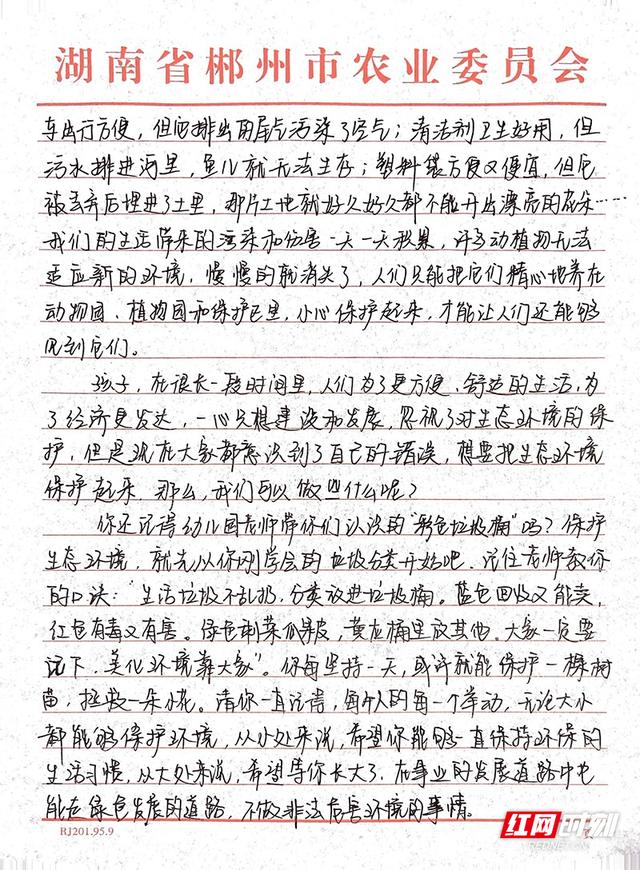 湖南省郴州市农业委员会
车出行方便，但它排出的尾气污染了空气；清洁剂卫生好用，但
污水排进河里，鱼儿就无法生存；塑料袋方便又便宜，但它
被丢弃后埋进了土里，那片土地就好久好久都不能开出漂亮的花朵……
我们的生活带来的污染和危害一天一天积累，许多动植物无法
适应新的环境，慢慢的就消失了，人们只能把它们精心地养在
动物园、植物园和保护区里，小心保护起来，才能让人们还能够
见到它们。
孩子，在很长一段时间里，人们为了更方便、舒适的生活，为
了经济更发达，一心只想建设和发展，忽视了对生态环境的保
护，但是现在大家都意识到了自己的错误，想要把生态环境
保护起来。那么，我们可以做些什么呢？
你还记得幼儿园老师带你们认识的“彩色垃圾桶”吗？保护
生态环境，就先从你刚学会的垃圾分类开始吧。记住老师教你
的口诀：“生活垃圾不乱扔，分类放进垃圾桶。蓝色回收又能卖，
红色有毒又有害。绿色剩菜瓜果皮，黄灰桶里放其他。大家一定要
记下，美化环境靠大家”。你每坚持一天，或许就能保护一棵树
苗，拯救一朵小花。请你一直记得，每个人的每一个举动，无论大小
都能够保护环境，从小处来说，希望你能够一直保持环保的
生活习惯，从大处来说，希望等你长大了，在事业的发展道路中也
能走绿色发展的道路，不做非法危害环境的事情。
RJ201.95.9
红网时刻
REDNET.CN